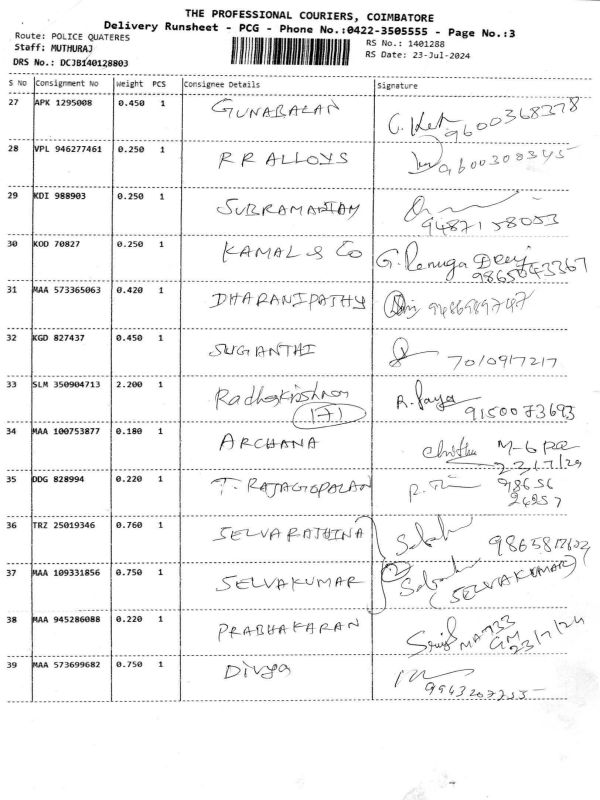 THE PROFESSIONAL COURIERS, COIMBATORE
Delivery Runsheet - PCG - Phone No.:0422-3505555 - Page No.:3
Route: POLICE QUATERES
Staff: MUTHURAJ
RS No.: 1401288
RS Date: 23-Jul-2024
DRS No.: DCJB140128803
S No Consignment No Weight PCS Consignee Details Signature
27 APK 1295008 0.450 1 GUNABALAN
9600368378
28 VPL 946277461 0.250 1 R R ALLOYS 9600308345
29 KDI 988903 0.250 1 SUBRAMANIAM
9487158053
30 KOD 70827 0.250 1 KAMAL & Co G. Renuga Devi
9865043367
31 MAA 573365063 0.420 1 DHARANIPATHY 9486989747
32 KGD 827437 0.450 1 SUGANTHI 7010917217
33 SLM 350904713 2.200 1 Radhakrishnan R. Jaya
(171) 9150073693
34 MAA 100753877 0.180 1 ARCHANA
23/7/24
35 DDG 828994 0.220 1 T. RAJAGOPALAN 98656
24257
36 TRZ 25019346 0.760 1 SELVARATHINA
37 MAA 109331856 0.750 1 SELVAKUMAR (SELVAKUMAR)
38 MAA 945286088 0.220 1 PRABHAKARAN
23/7/24
39 MAA 573699682 0.750 1 Divya
9943207755